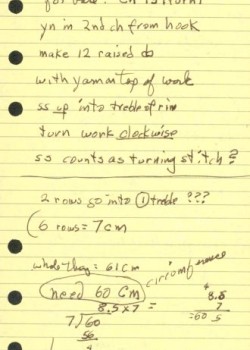 for hole. Ch 15 (turn)
yn in 2nd ch from hook
make 12 raised dc
with yarn on top of work
ss up into treble of rim
turn work clockwise
ss counts as turning stitch?
2 rows go into ① treble ???
6 rows = 7 cm
whole thing = 61 cm
circumference
need 60 cm
8.5 x 7 =
8.5
7
=60 5
7)60
56
4